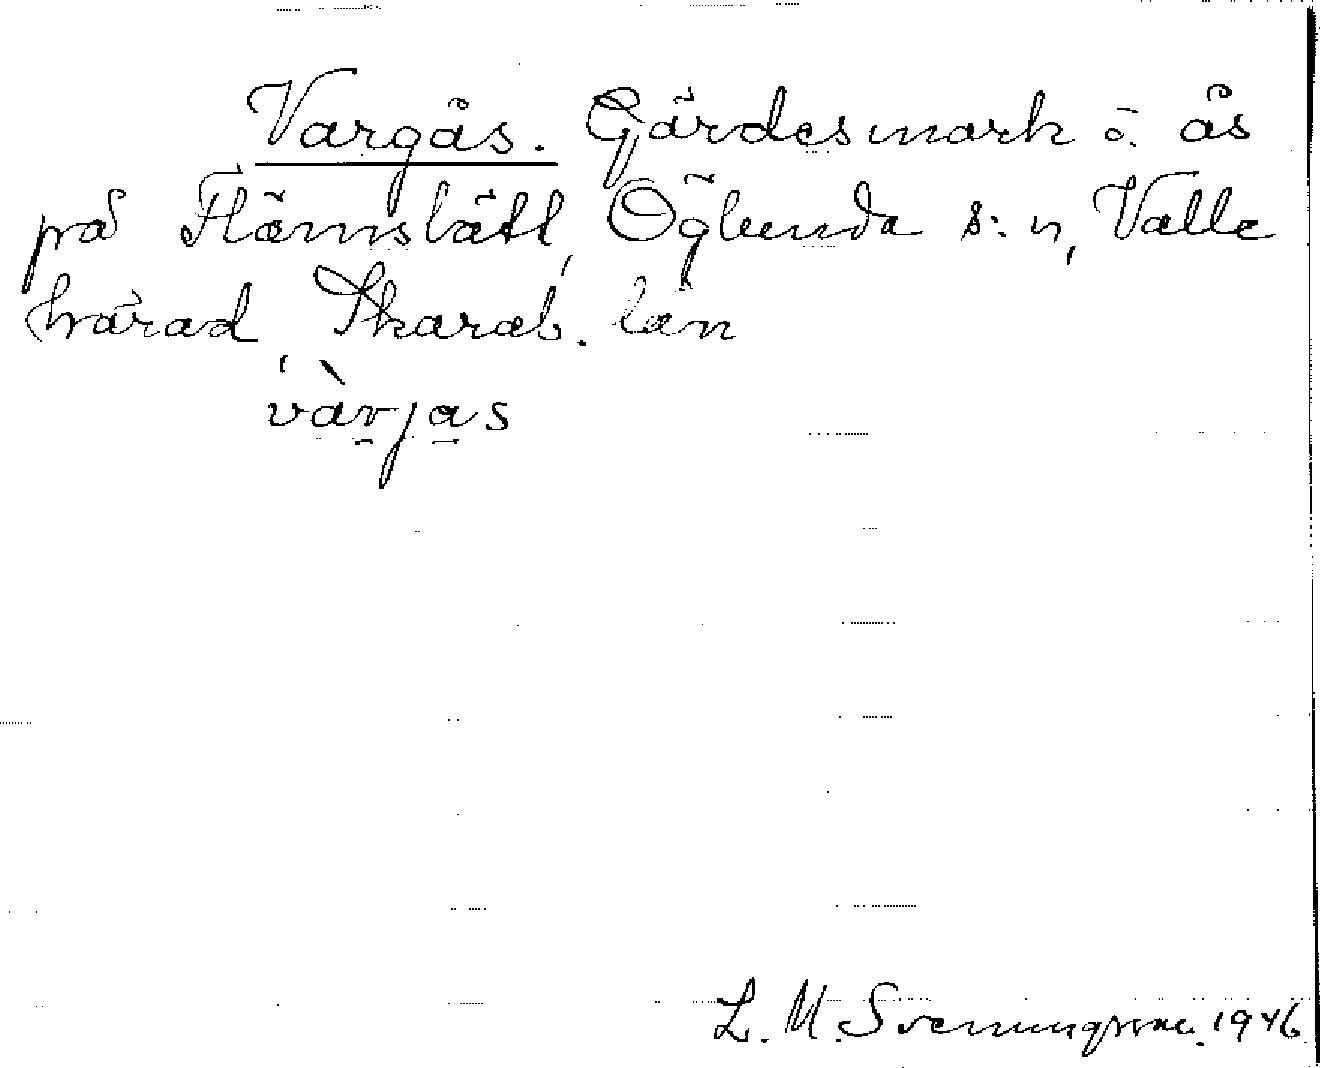 Vargås. Gärdesmark o. ås
på Flämslätt, Öglunda s:n, Valle
härad, Skarab. län
vàrjas
L. M. Svenungsson. 1946